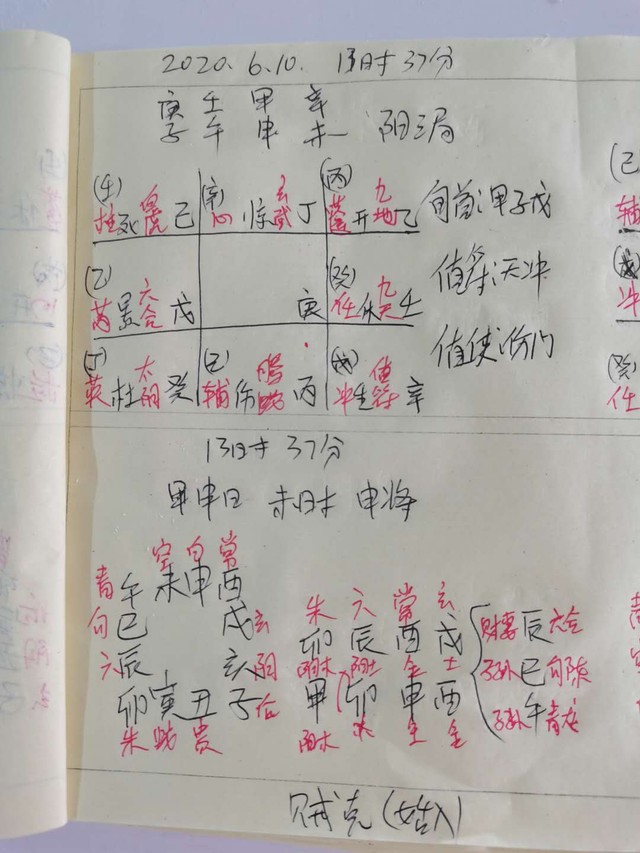 2020. 6. 10. 13时37分
庚 壬 甲 辛
子 午 申 未 阳三局
(辛) (丙)
柱死白虎己 心惊玄武丁 蓬开九地乙 旬首:甲子戊
(乙) (癸)
芮景六合戊 庚 任休九天壬 值符:天冲
英杜太阴癸 辅伤腾蛇丙 冲生值符辛 值使:伤门
13时37分
甲申日 未时 申将
空 白 常
青 午 未 申 酉
勾 巳 戌 玄
六 辰 亥 阴
卯 寅 丑 子 后
朱 蛇 贵
朱 六 常 玄
卯 辰 酉 戌
阴木 阳土 金 土
甲 卯 申 酉
阳木 木 金 金
财妻 辰 六合
子孙 巳 勾陈
子孙 午 青龙
贼克(始入)
(己)
辅
冲
(癸)
任